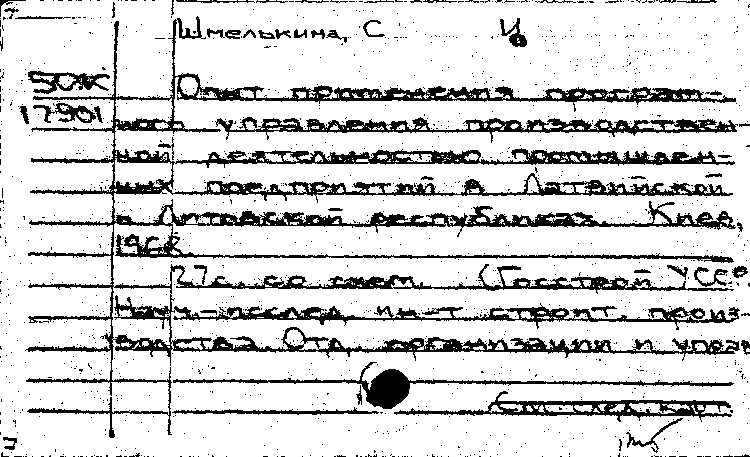 Шмелькина, С
50Ж
17901
Опыт применения програм-
ного управления производствен-
ной деятельностью промышлен-
ных предприятий в Латвийской
и Литовской республиках. Киев,
1968.
27 с. со схем. (Госстрой УССР.
Науч.-исслед. ин-т строит. произ-
водства. Отд. организации и управ
См. след. карт.